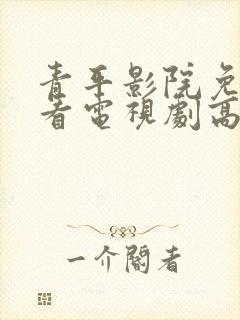 青平影院免
看電視劇高
一介閣者